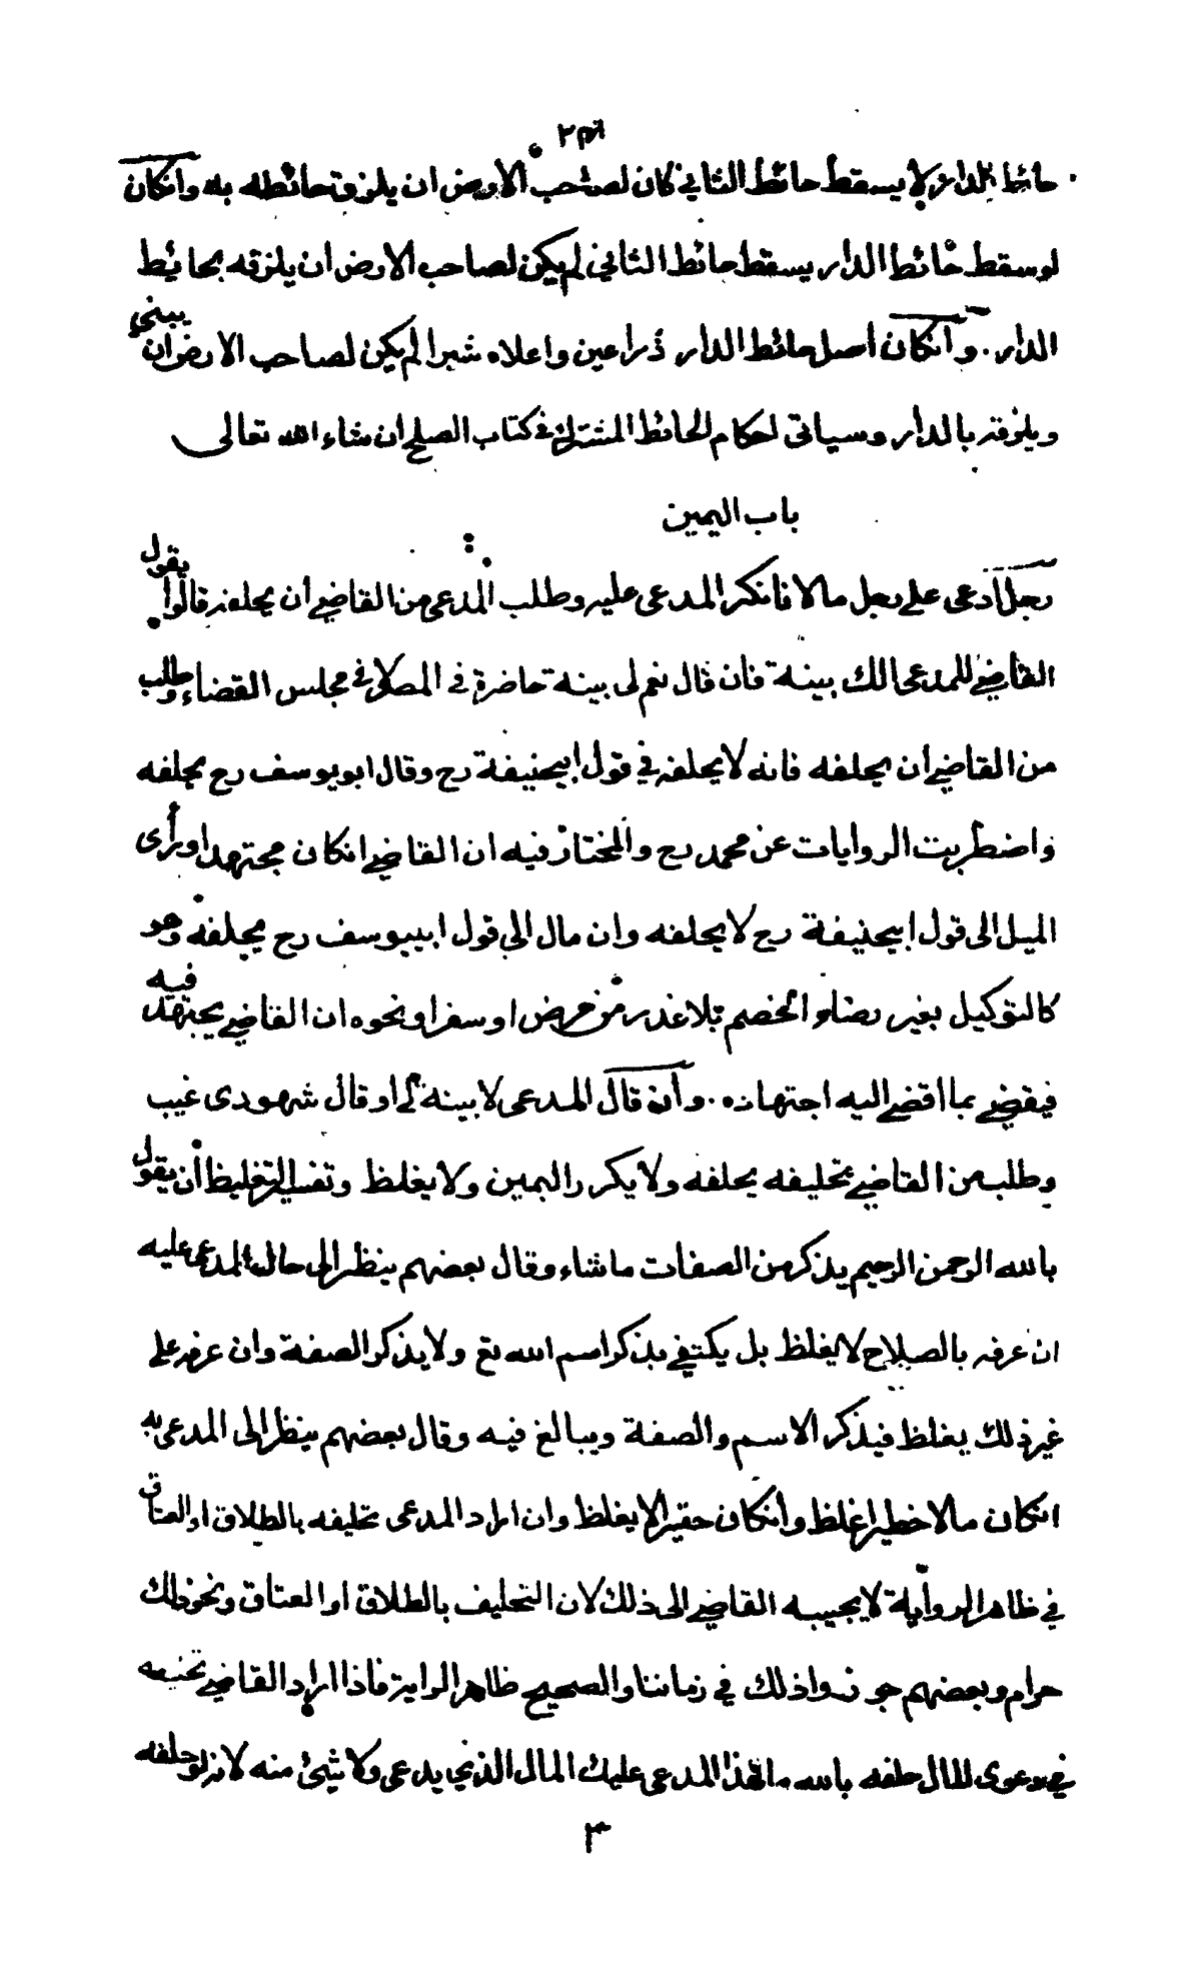 حائط الدار لا يسقط حائط الثاني كان لصاحب الارض ان يلزق حائطه به وانكان
لو سقط حائط الدار يسقط حائط الثاني لم يكن لصاحب الارض ان يلزقه بحائيط
الدار . وانكان اصل حائط الدار ذراعين واعلاه شبرا لم يكن لصاحب الارض ان يبني
ويلزقه بالدار وسياتى احكام الحائط المشترك في كتاب الصلح ان شاء الله تعالى
باب اليمين
رجل ادعى على رجل مالا فانكر المدعى عليه وطلب المدعى من القاضي ان يحلفه قالوا يقول
القاضي للمدعى الك بينة فان قال نعم لى بينة حاضرة في المصر او في مجلس القضاء وطلب
من القاضي ان يحلفه فانه لا يحلفه في قول ابيحنيفة رح وقال ابو يوسف رح يحلفه
واضطربت الروايات عن محمد رح والمختار فيه ان القاضي انكان مجتهدا ورأى
الميل الى قول ابيحنيفة رح لا يحلفه وان مال الى قول ابييوسف رح يحلفه وهو
كالتوكيل بغير رضاء الخصم بلا عذر من مرض او سفر او نحوه ان القاضي يجتهد فيه
فيقضي بما افضى اليه اجتهاده . وان قال المدعى لا بينة لي او قال شهودى غيب
وطلب من القاضي تحليفه يحلفه ولا يكرر اليمين ولا يغلظ وتفسير التغليظ ان يقول
بالله الرحمن الرحيم يذكر من الصفات ما شاء وقال بعضهم ينظر الى حال المدعى عليه
ان عرفه بالصلاح لا يغلظ بل يكتفي بذكر اسم الله تع ولا يذكر الصفة وان عرفه على
غير ذلك يغلظ فيذكر الاسم والصفة ويبالغ فيه وقال بعضهم ينظر الى المدعى به
انكان مالا خطيرا غلظ وانكان حقيرا لا يغلظ وان اراد المدعى تحليفه بالطلاق او العتاق
في ظاهر الرواية لا يجيبه القاضي الى ذلك لان التحليف بالطلاق او العتاق ونحو ذلك
حرام وبعضهم جوزوا ذلك في زماننا والصحيح ظاهر الرواية فاذا اراد القاضي
في دعوى المال حلفه بالله ما لهذا المدعى عليك المال الذي يدعى ولا شئ منه لانه لو حلفه
٣